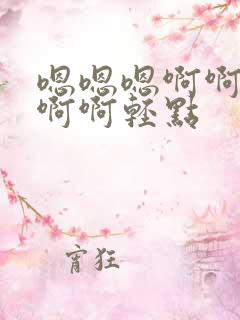 嗯嗯嗯啊啊
啊啊輕點
宵狂